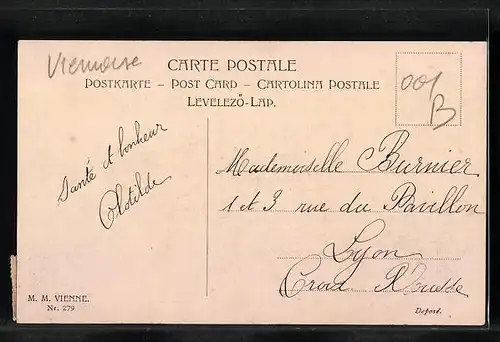 Viennoise
CARTE POSTALE
POSTKARTE – POST CARD – CARTOLINA POSTALE
LEVELEZŐ-LAP.
001
B
Santé et bonheur
Clotilde
Mademoiselle Burnier
1 et 3 rue du Pavillon
Lyon
Croix Rousse
M. M. VIENNE.
Nr. 279
Deposé.